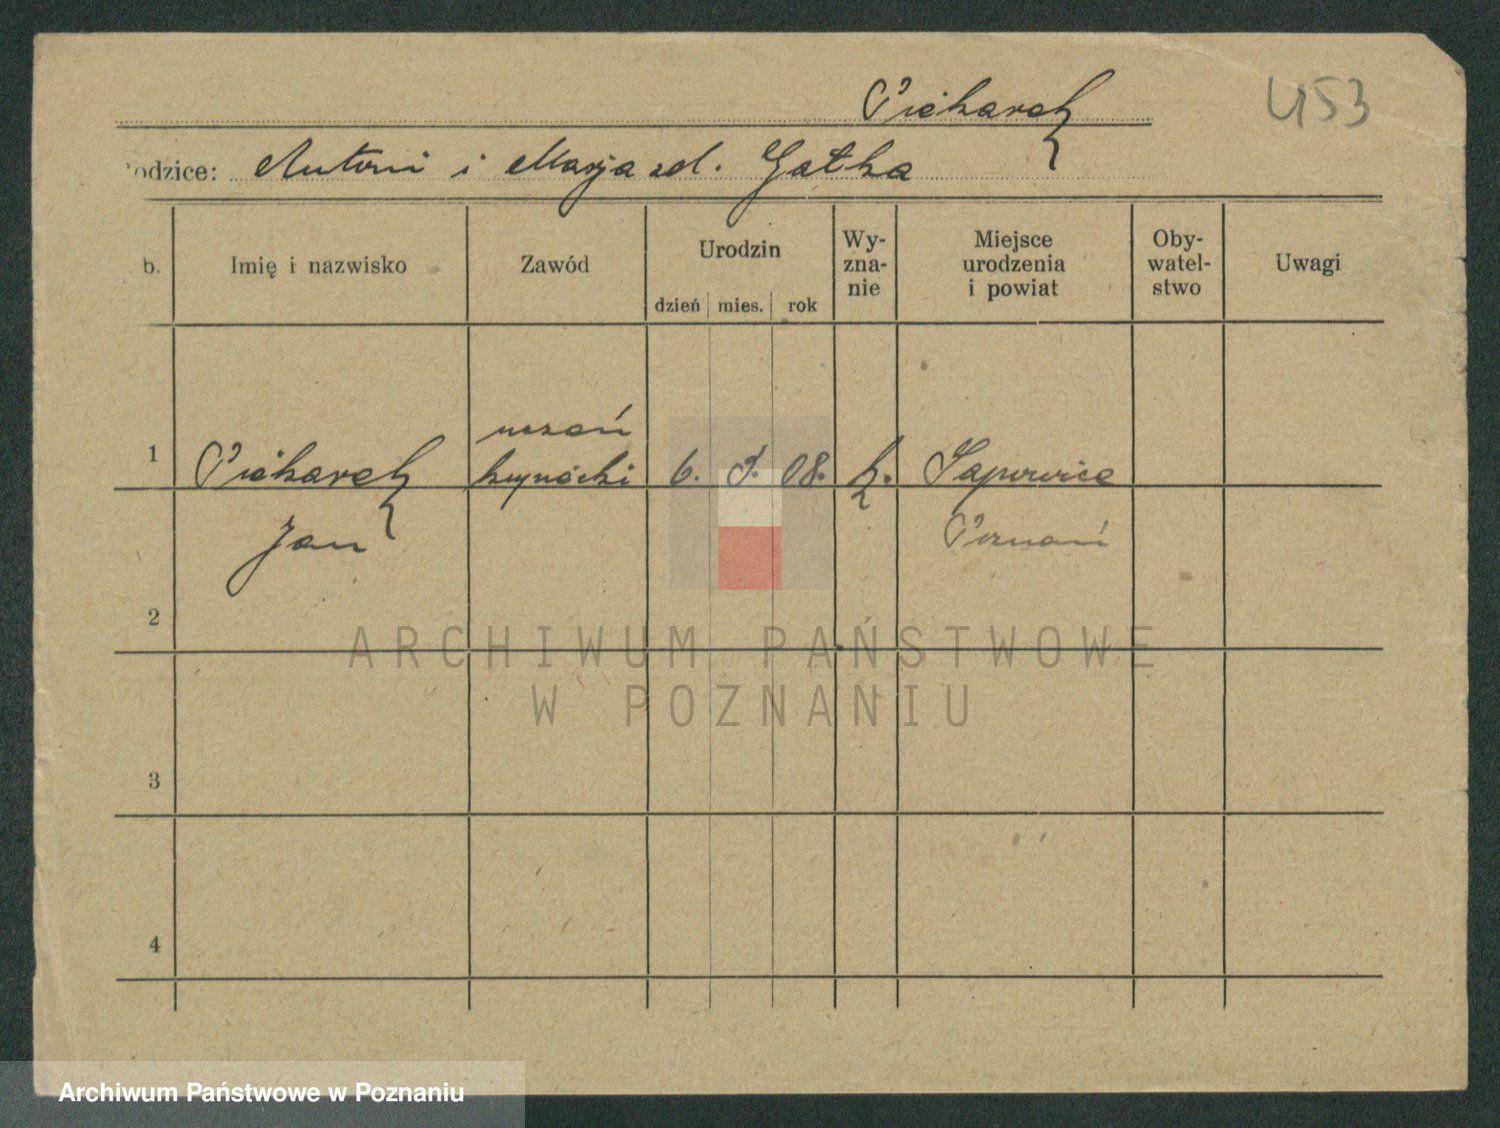 Piekarek
453
odzice: Antoni i Marja zd. Gałka
b.
Imię i nazwisko
Zawód
Urodzin
dzień mies. rok
Wy-
zna-
nie
Miejsce
urodzenia
i powiat
Oby-
watel-
stwo
Uwagi
1
Piekarek
Jan
uczeń
6. 08.
k.
Sapowice
Poznań
2
3
4
ARCHIWUM PAŃSTWOWE
W POZNANIU
Archiwum Państwowe w Poznaniu